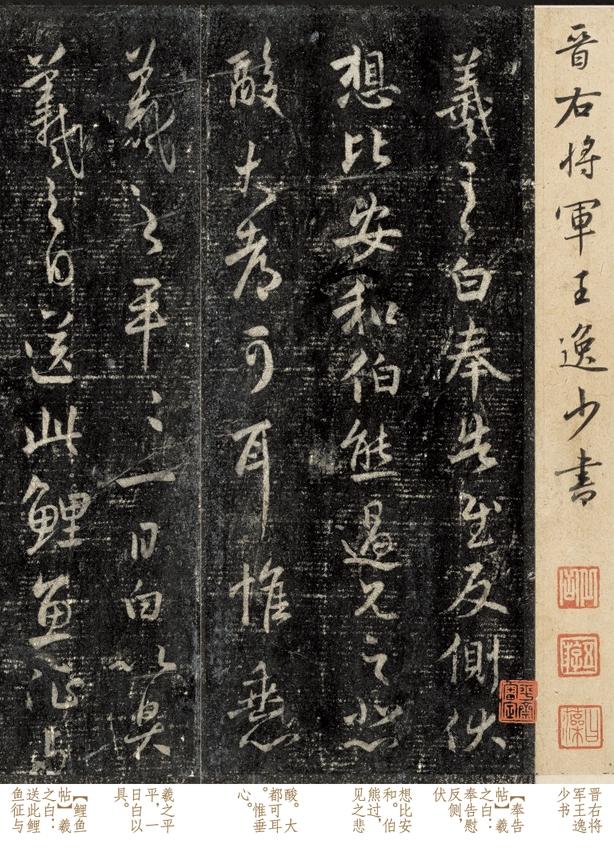 晋右将軍王逸少書
羲之白奉告慰反側伏
想比安和伯熊過見之悲
酸大都可耳惟垂心
羲之平〻一日白以具
羲之白送此鯉魚征与
晋右将
军王逸
少书
【奉告
帖】羲
之白：
奉告慰
反侧，
伏
想比安
和。伯
熊过，
见之悲
酸。大
都可耳
。惟垂
心。
羲之平
平，一
日白以
具。
【鲤鱼
帖】羲
之白：
送此鲤
鱼征与